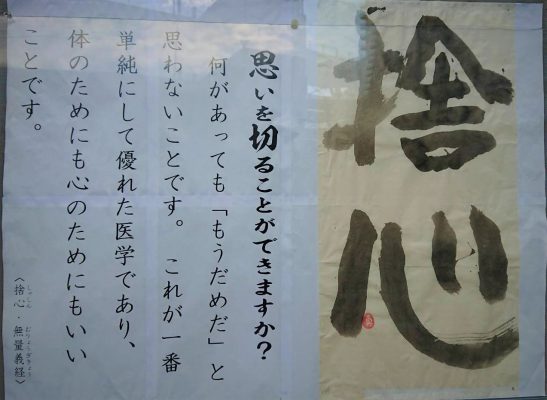 捨心
思いを切ることができますか?
何があっても「もうだめだ」と
思わないことです。 これが一番
単純にして優れた医学であり、
体のためにも心のためにもいい
ことです。
〈捨心・無量義経〉
しゃしん むりょうぎきょう